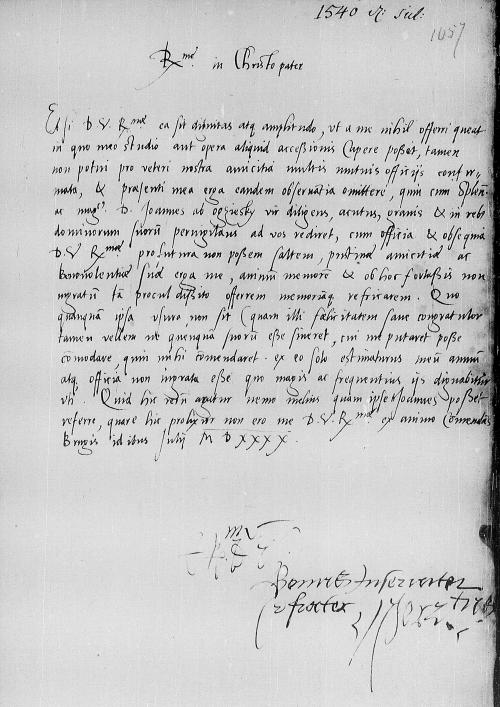 1540 Jul:
1057
R.me in Christo pater
Et si D. V. R.ma ea sit dignitas atq amplitudo, ut a me nihil offerri queat
in quo meo studio aut opera aliquid accessionis capere posset, tamen
non potui pro veteri nostra amicitia multis mutuis officijs confir-
mata, & praesenti mea erga eandem observãtia omittere, quin cum
ac D. Joannes ab vir diligens, acutus, gravis & in reb9
dominorum suorũ pervigilans ad vos rediret, cum officia & obsequia
D. V. R.mae profutura non possem saltem, pristinae amicitiae ac
benevolentiae suae erga me, animũ memorẽ & ob hoc fortassis non
ingratũ tã procul dissito offerrem memoriãq refricarem. Quo
quanquã ipsa usura non sit (quam illi faelicitatem sane congratulor
tamen vellem ne quenquã suorũ esse sineret, cui me putaret posse
comodare, quin mihi comendaret. ex eo solo estimaturus meũ animũ
atq officia non ingrata esse quo magis ac frequentius ijs dignabitur
uti. Quid hic rerũ agatur nemo melius quam ipse Joannes posset
referre, quare hic prolixior non ero me D. V. R.mae ex animo Comendãs
Brugis idibus Julij M D XXXX.
E R D V
Bonus Inservitor
& frater